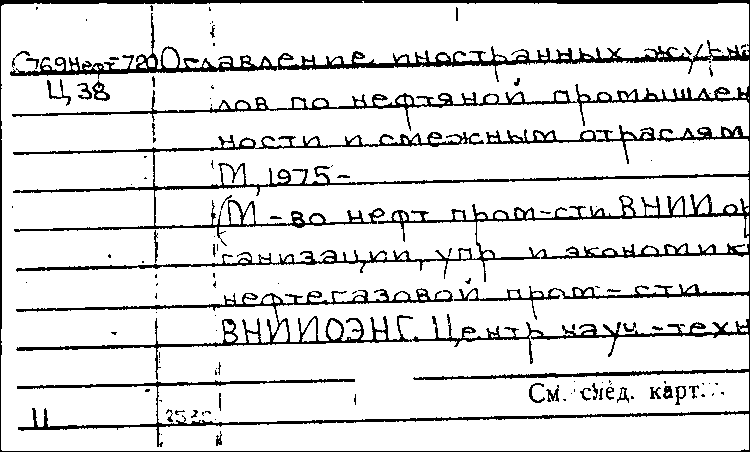 С769Нефт720 Оглавление иностранных журна
Ц38 лов по нефтяной промышлен
ности и смежным отраслям
М, 1975-
(М-во нефт пром-сти. ВНИИ ор
ганизации, упр и экономик
нефтегазовой пром-сти
ВНИИОЭНГ. Центр науч-техн
См. след. карт.
11